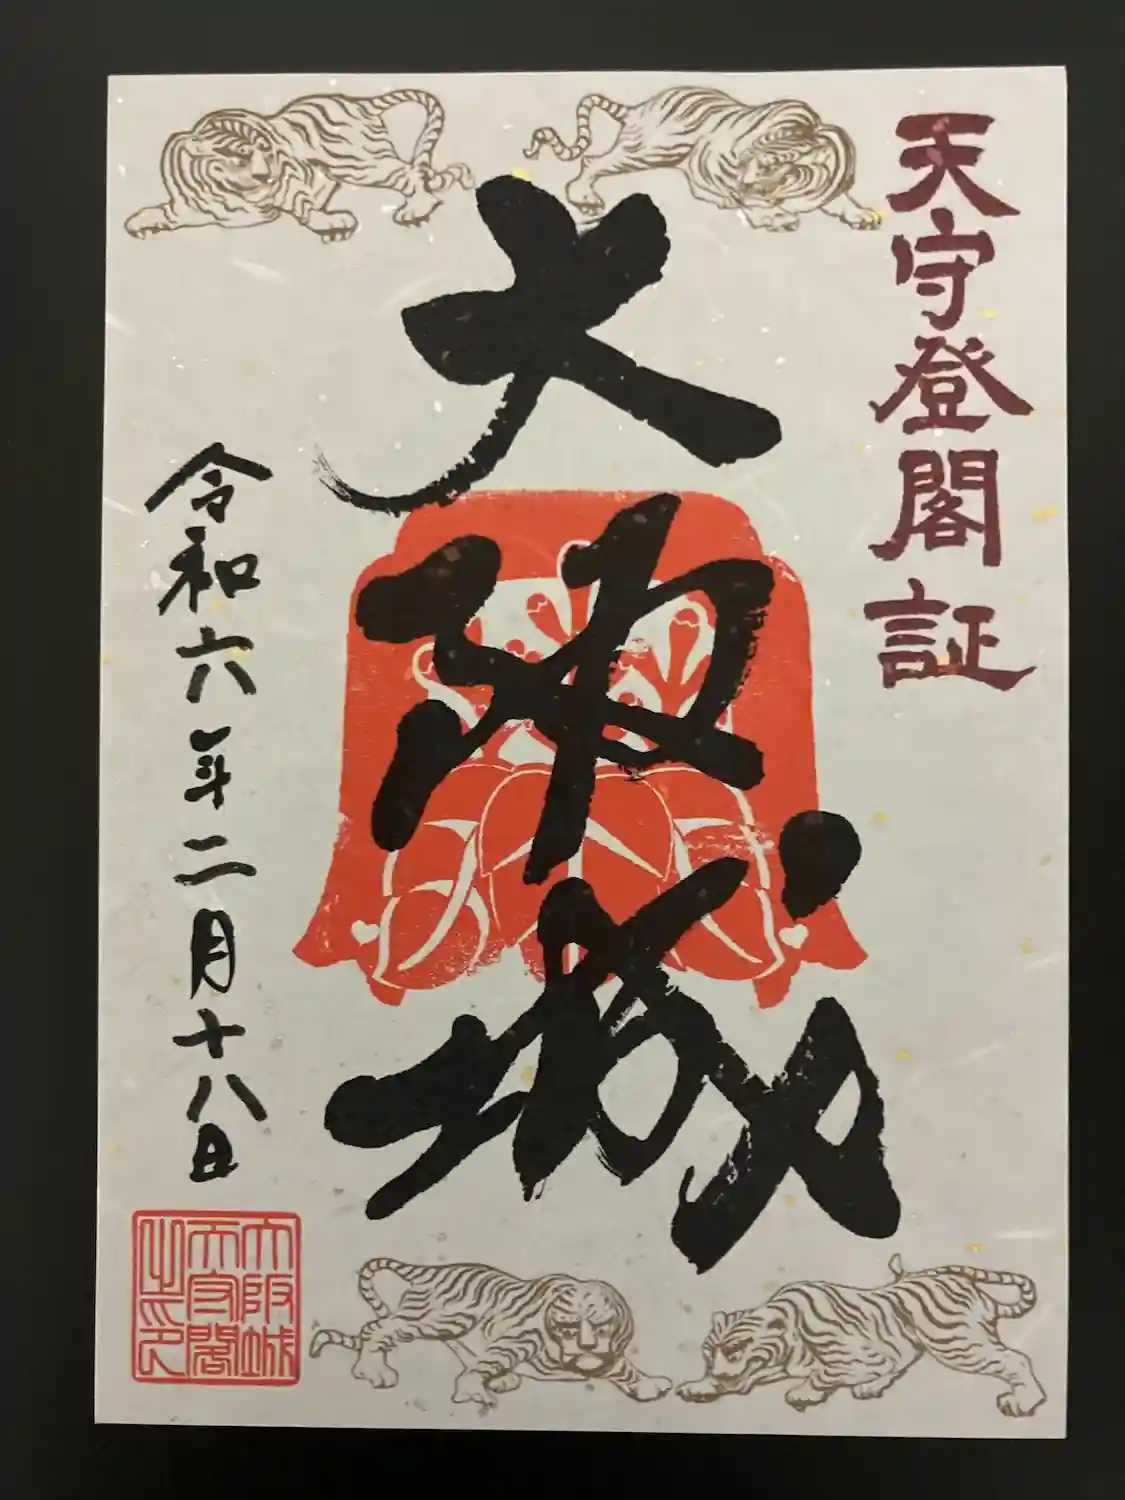 天守登閣証
大坂城
令和六年二月十八日
大阪城
天守閣
之印